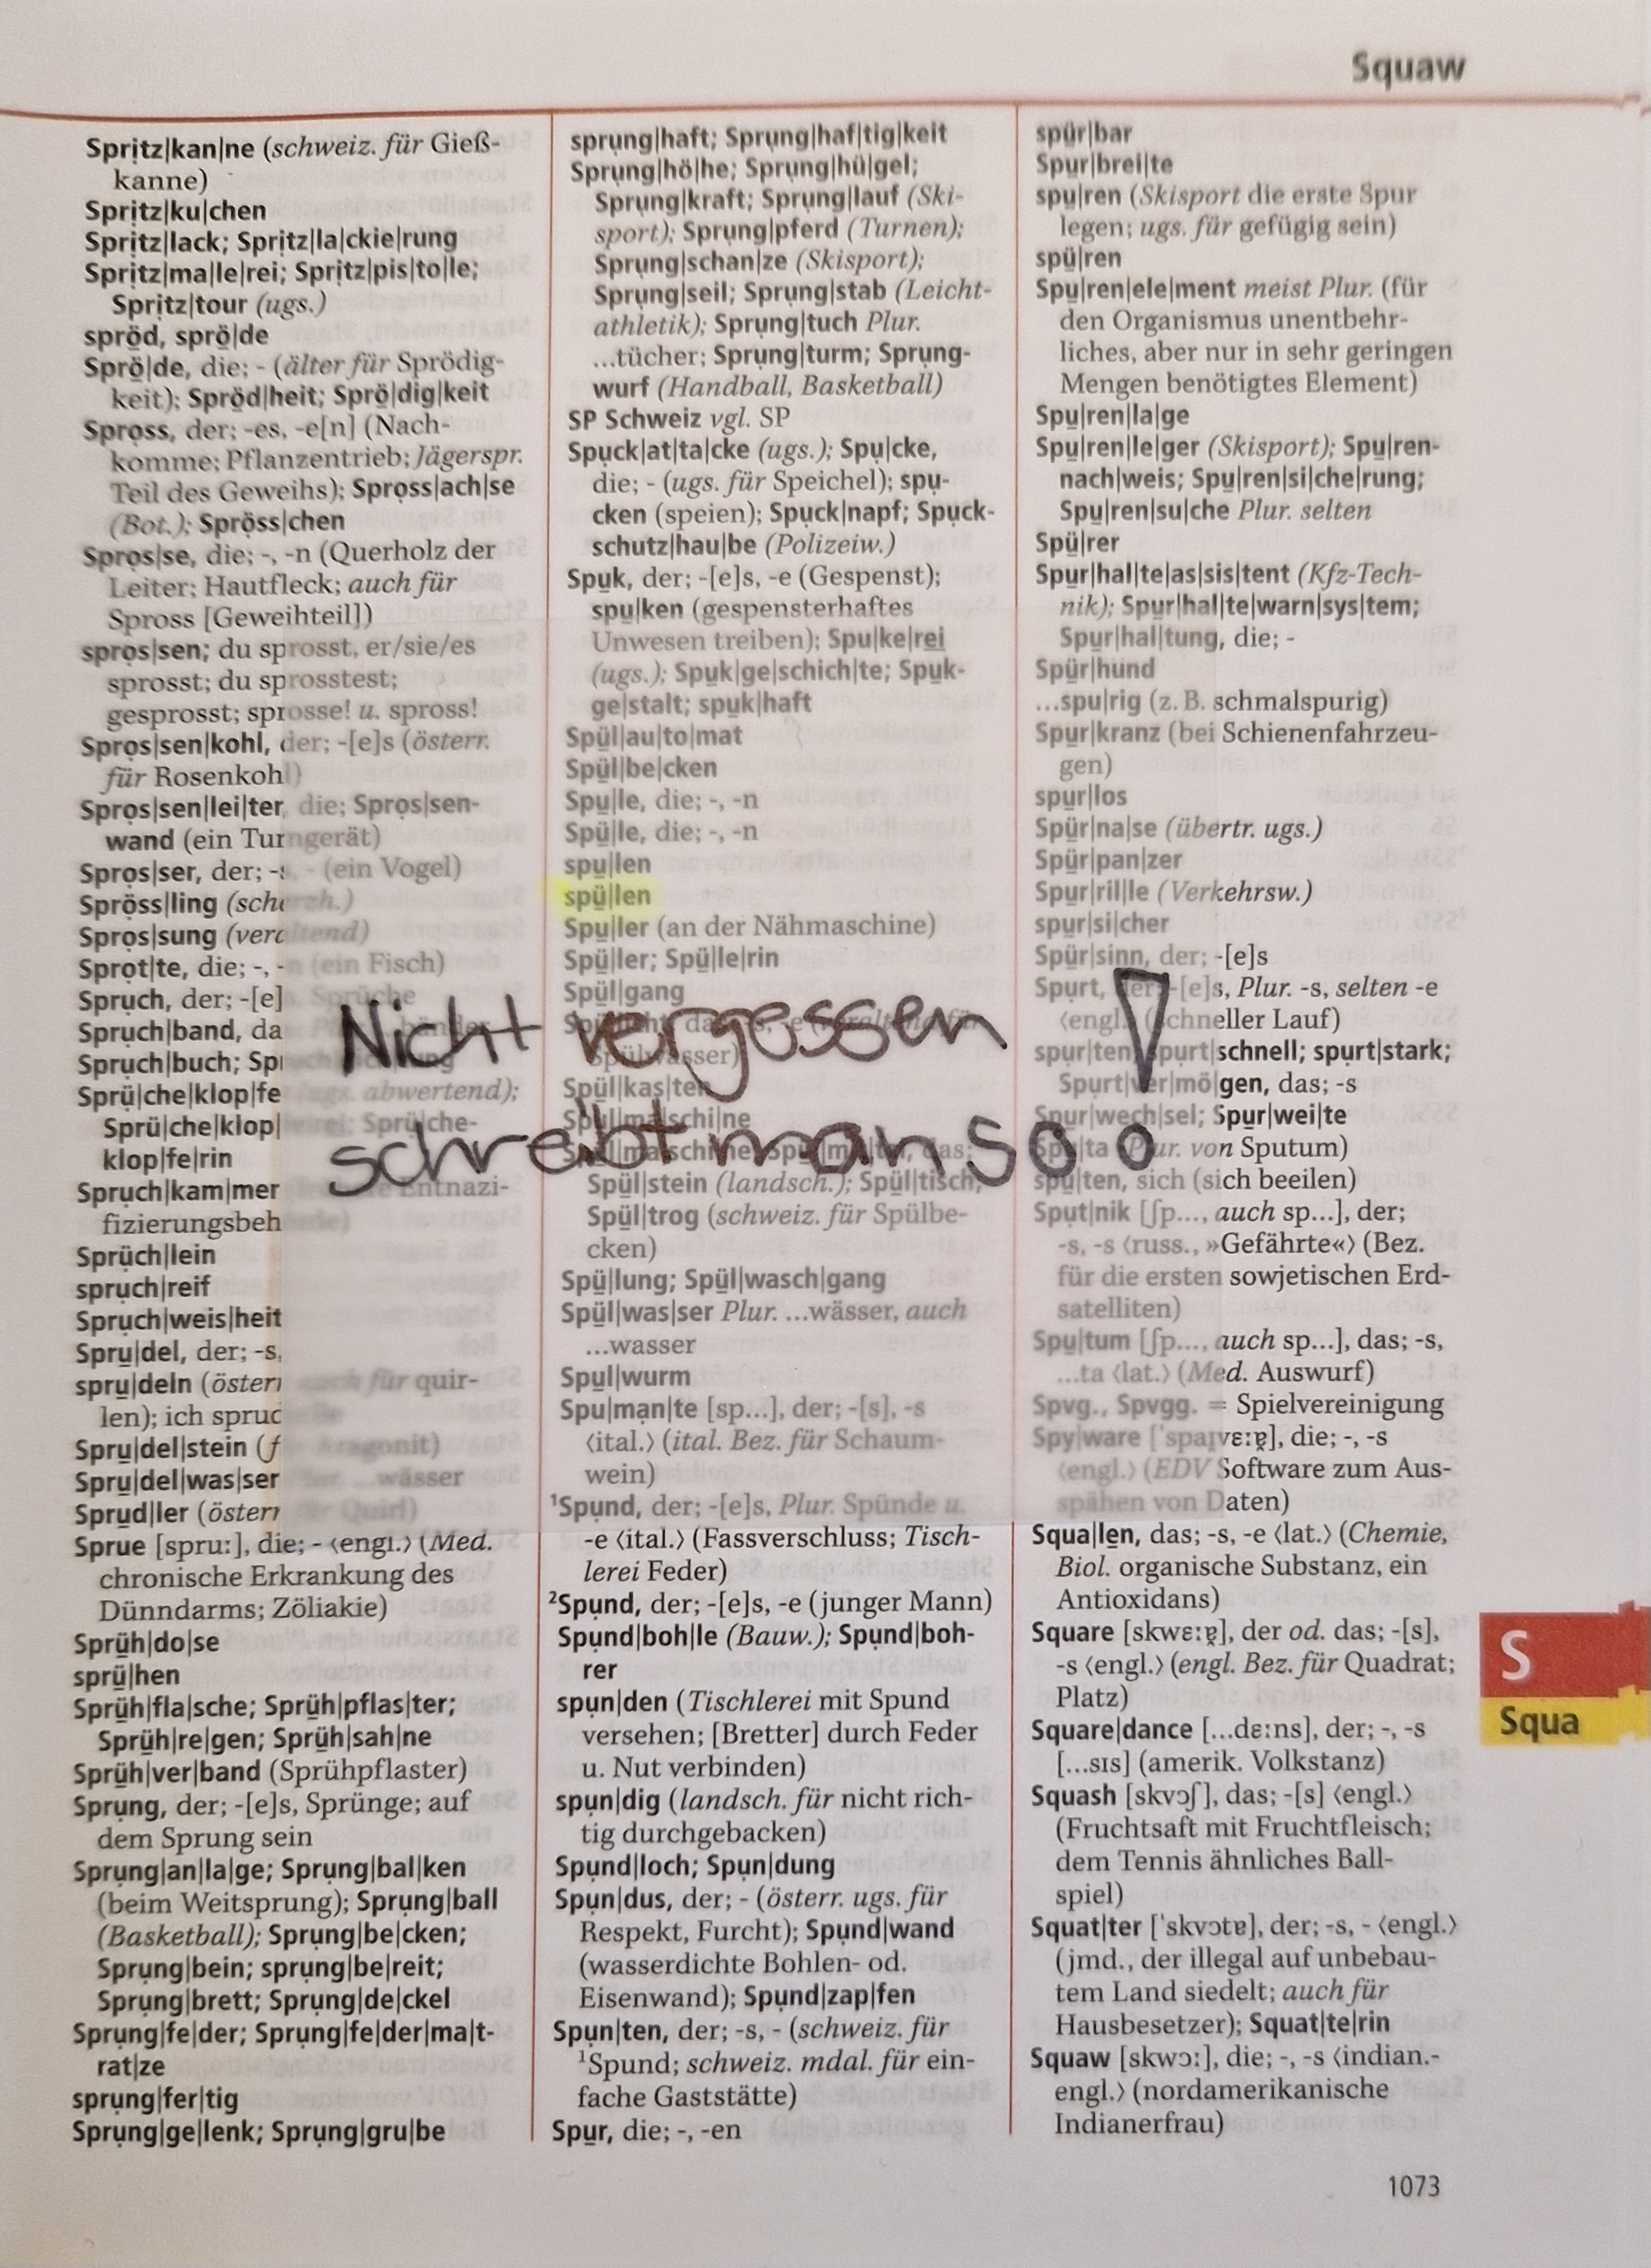 Squaw
Spritz|kan|ne (schweiz. für Gieß-
kanne)
Spritz|ku|chen
Spritz|lack; Spritz|la|ckie|rung
Spritz|ma|le|rei; Spritz|pis|to|le;
Spritz|tour (ugs.)
spröd, sprö|de
Sprö|de, die; - (älter für Sprödig-
keit); Spröd|heit; Sprö|dig|keit
Spross, der; -es, -e[n] (Nach-
komme; Pflanzentrieb; Jägerspr.
Teil des Geweihs); Spross|ach|se
(Bot.); Spröss|chen
Spros|se, die; -, -n (Querholz der
Leiter; Hautfleck; auch für
Spross [Geweihteil])
spros|sen; du sprosst, er/sie/es
sprosst; du sprosstest;
gesprosst; sprosse! u. spross!
Spros|sen|kohl, der; -[e]s (österr.
für Rosenkohl)
Spros|sen|lei|ter, die; Spros|sen-
wand (ein Turngerät)
Spros|ser, der; -s, - (ein Vogel)
Spröss|ling (scherzh.)
Spros|sung (veraltend)
Sprot|te, die; -, -n (ein Fisch)
Spruch, der; -[e]s, Sprüche
Spruch|band, das Plur. ...bänder
Spruch|buch; Spruch|dich|tung
Sprü|che|klop|fer (ugs. abwertend);
Sprü|che|klop|fe|rei; Sprü|che-
klop|fe|rin
Spruch|kam|mer Entnazi-
fizierungsbehörde)
Sprüch|lein
spruch|reif
Spruch|weis|heit
Spru|del, der; -s,
spru|deln (österr. auch für quir-
len); ich sprud|le
Spru|del|stein (für Aragonit)
Spru|del|was|ser Plur. ...wässer
Sprud|ler (österr. für Quirl)
Sprue [spruː], die; - ⟨engl.⟩ (Med.
chronische Erkrankung des
Dünndarms; Zöliakie)
Sprüh|do|se
sprü|hen
Sprüh|fla|sche; Sprüh|pflas|ter;
Sprüh|re|gen; Sprüh|sah|ne
Sprüh|ver|band (Sprühpflaster)
Sprung, der; -[e]s, Sprünge; auf
dem Sprung sein
Sprung|an|la|ge; Sprung|bal|ken
(beim Weitsprung); Sprung|ball
(Basketball); Sprung|be|cken;
Sprung|bein; sprung|be|reit;
Sprung|brett; Sprung|de|ckel
Sprung|fe|der; Sprung|fe|der|ma|t-
rat|ze
sprung|fer|tig
Sprung|ge|lenk; Sprung|gru|be
sprung|haft; Sprung|haf|tig|keit
Sprung|hö|he; Sprung|hü|gel;
Sprung|kraft; Sprung|lauf (Ski-
sport); Sprung|pferd (Turnen);
Sprung|schan|ze (Skisport);
Sprung|seil; Sprung|stab (Leicht-
athletik); Sprung|tuch Plur.
...tücher; Sprung|turm; Sprung-
wurf (Handball, Basketball)
SP Schweiz vgl. SP
Spuck|at|ta|cke (ugs.); Spu|cke,
die; - (ugs. für Speichel); spu-
cken (speien); Spuck|napf; Spuck-
schutz|hau|be (Polizeiw.)
Spuk, der; -[e]s, -e (Gespenst);
spu|ken (gespensterhaftes
Unwesen treiben); Spu|ke|rei
(ugs.); Spuk|ge|schich|te; Spuk-
ge|stalt; spuk|haft
Spül|au|to|mat
Spül|be|cken
Spu|le, die; -, -n
Spü|le, die; -, -n
spu|len
spü|len
Spu|ler (an der Nähmaschine)
Spü|ler; Spü|le|rin
Spül|gang
Spül|licht, das; -s, -e (veraltend für
Spülwasser)
Spül|kas|ten
Spül|ma|schi|ne
Spül|mit|tel, das;
Spül|stein (landsch.); Spül|tisch;
Spül|trog (schweiz. für Spülbe-
cken)
Spü|lung; Spül|wasch|gang
Spül|was|ser Plur. ...wässer, auch
...wasser
Spul|wurm
Spu|man|te [sp...], der; -[s], -s
⟨ital.⟩ (ital. Bez. für Schaum-
wein)
¹Spund, der; -[e]s, Plur. Spünde u.
-e ⟨ital.⟩ (Fassverschluss; Tisch-
lerei Feder)
²Spund, der; -[e]s, -e (junger Mann)
Spund|boh|le (Bauw.); Spund|boh-
rer
spun|den (Tischlerei mit Spund
versehen; [Bretter] durch Feder
u. Nut verbinden)
spun|dig (landsch. für nicht rich-
tig durchgebacken)
Spund|loch; Spun|dung
Spun|dus, der; - (österr. ugs. für
Respekt, Furcht); Spund|wand
(wasserdichte Bohlen- od.
Eisenwand); Spund|zap|fen
Spun|ten, der; -s, - (schweiz. für
¹Spund; schweiz. mdal. für ein-
fache Gaststätte)
Spur, die; -, -en
spür|bar
Spur|brei|te
spu|ren (Skisport die erste Spur
legen; ugs. für gefügig sein)
spü|ren
Spu|ren|ele|ment meist Plur. (für
den Organismus unentbehr-
liches, aber nur in sehr geringen
Mengen benötigtes Element)
Spu|ren|la|ge
Spu|ren|le|ger (Skisport); Spu|ren-
nach|weis; Spu|ren|si|che|rung;
Spu|ren|su|che Plur. selten
Spü|rer
Spur|hal|te|as|sis|tent (Kfz-Tech-
nik); Spur|hal|te|warn|sys|tem;
Spur|hal|tung, die; -
Spür|hund
...spu|rig (z. B. schmalspurig)
Spur|kranz (bei Schienenfahrzeu-
gen)
spur|los
Spür|na|se (übertr. ugs.)
Spür|pan|zer
Spur|ril|le (Verkehrsw.)
spur|si|cher
Spür|sinn, der; -[e]s
Spurt, der; -[e]s, Plur. -s, selten -e
⟨engl.⟩ (schneller Lauf)
spur|ten; spurt|schnell; spurt|stark;
Spurt|ver|mö|gen, das; -s
Spur|wech|sel; Spur|wei|te
Spu|ta (Plur. von Sputum)
spu|ten, sich (sich beeilen)
Sput|nik [ʃp..., auch sp...], der;
-s, -s ⟨russ., »Gefährte«⟩ (Bez.
für die ersten sowjetischen Erd-
satelliten)
Spu|tum [ʃp..., auch sp...], das; -s,
...ta ⟨lat.⟩ (Med. Auswurf)
Spvg., Spvgg. = Spielvereinigung
Spy|ware [ˈspaɪvɛːɐ̯], die; -, -s
⟨engl.⟩ (EDV Software zum Aus-
spähen von Daten)
Squa|len, das; -s, -e ⟨lat.⟩ (Chemie,
Biol. organische Substanz, ein
Antioxidans)
Square [skwɛːɐ̯], der od. das; -[s],
-s ⟨engl.⟩ (engl. Bez. für Quadrat;
Platz)
Square|dance [...dɛːns], der; -, -s
[...sɪs] (amerik. Volkstanz)
Squash [skvɔʃ], das; -[s] ⟨engl.⟩
(Fruchtsaft mit Fruchtfleisch;
dem Tennis ähnliches Ball-
spiel)
Squat|ter [ˈskvɔtɐ], der; -s, - ⟨engl.⟩
(jmd., der illegal auf unbebau-
tem Land siedelt; auch für
Hausbesetzer); Squat|te|rin
Squaw [skwɔː], die; -, -s ⟨indian.-
engl.⟩ (nordamerikanische
Indianerfrau)
Nicht vergessen !
schreibt man so
S
Squa
1073